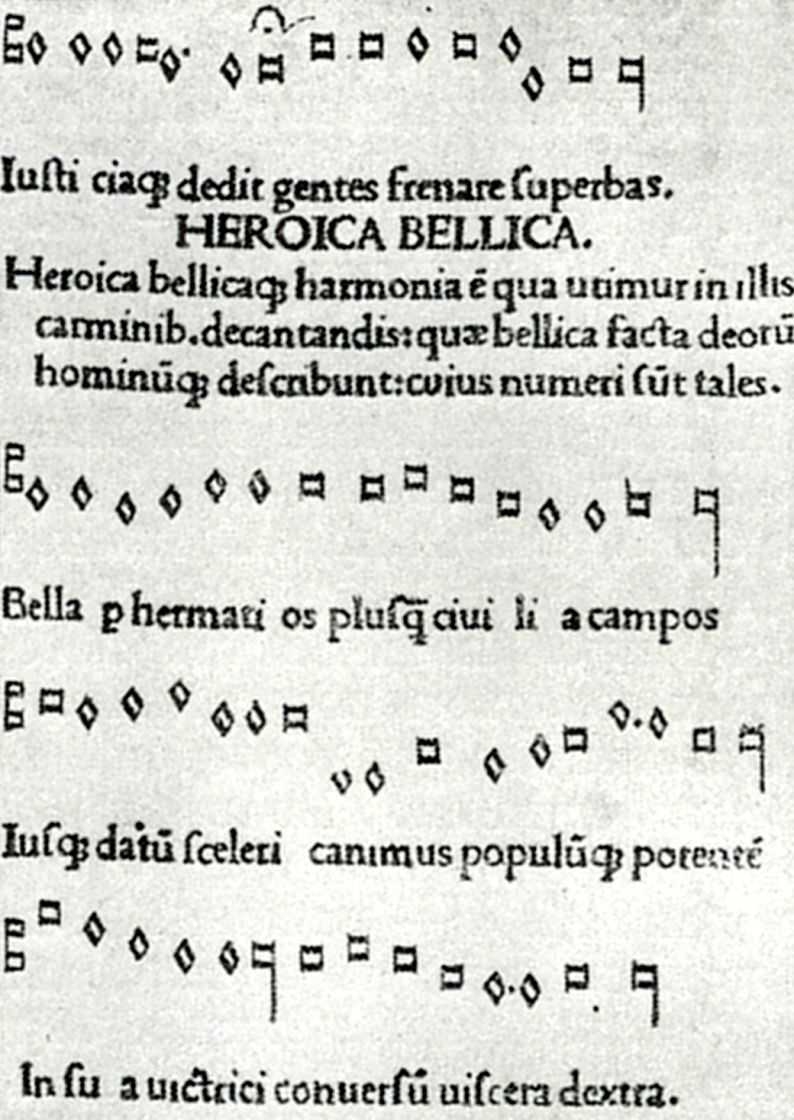 Iuſti ciaqꝫ dedit gentes frenare ſuperbas.
HEROICA BELLICA.
Heroica bellicaqꝫ harmonia ē qua utimur in illis
carminib.decantandis:quæ bellica facta deorū
hominūqꝫ deſcribunt:cuius numeri ſūt tales.
Bella ꝑ hermati os pluſq̄ ciui li a campos
Iuſqꝫ datū ſceleri canimus populūqꝫ potentē
In ſu a uictrici conuerſū uiſcera dextra.